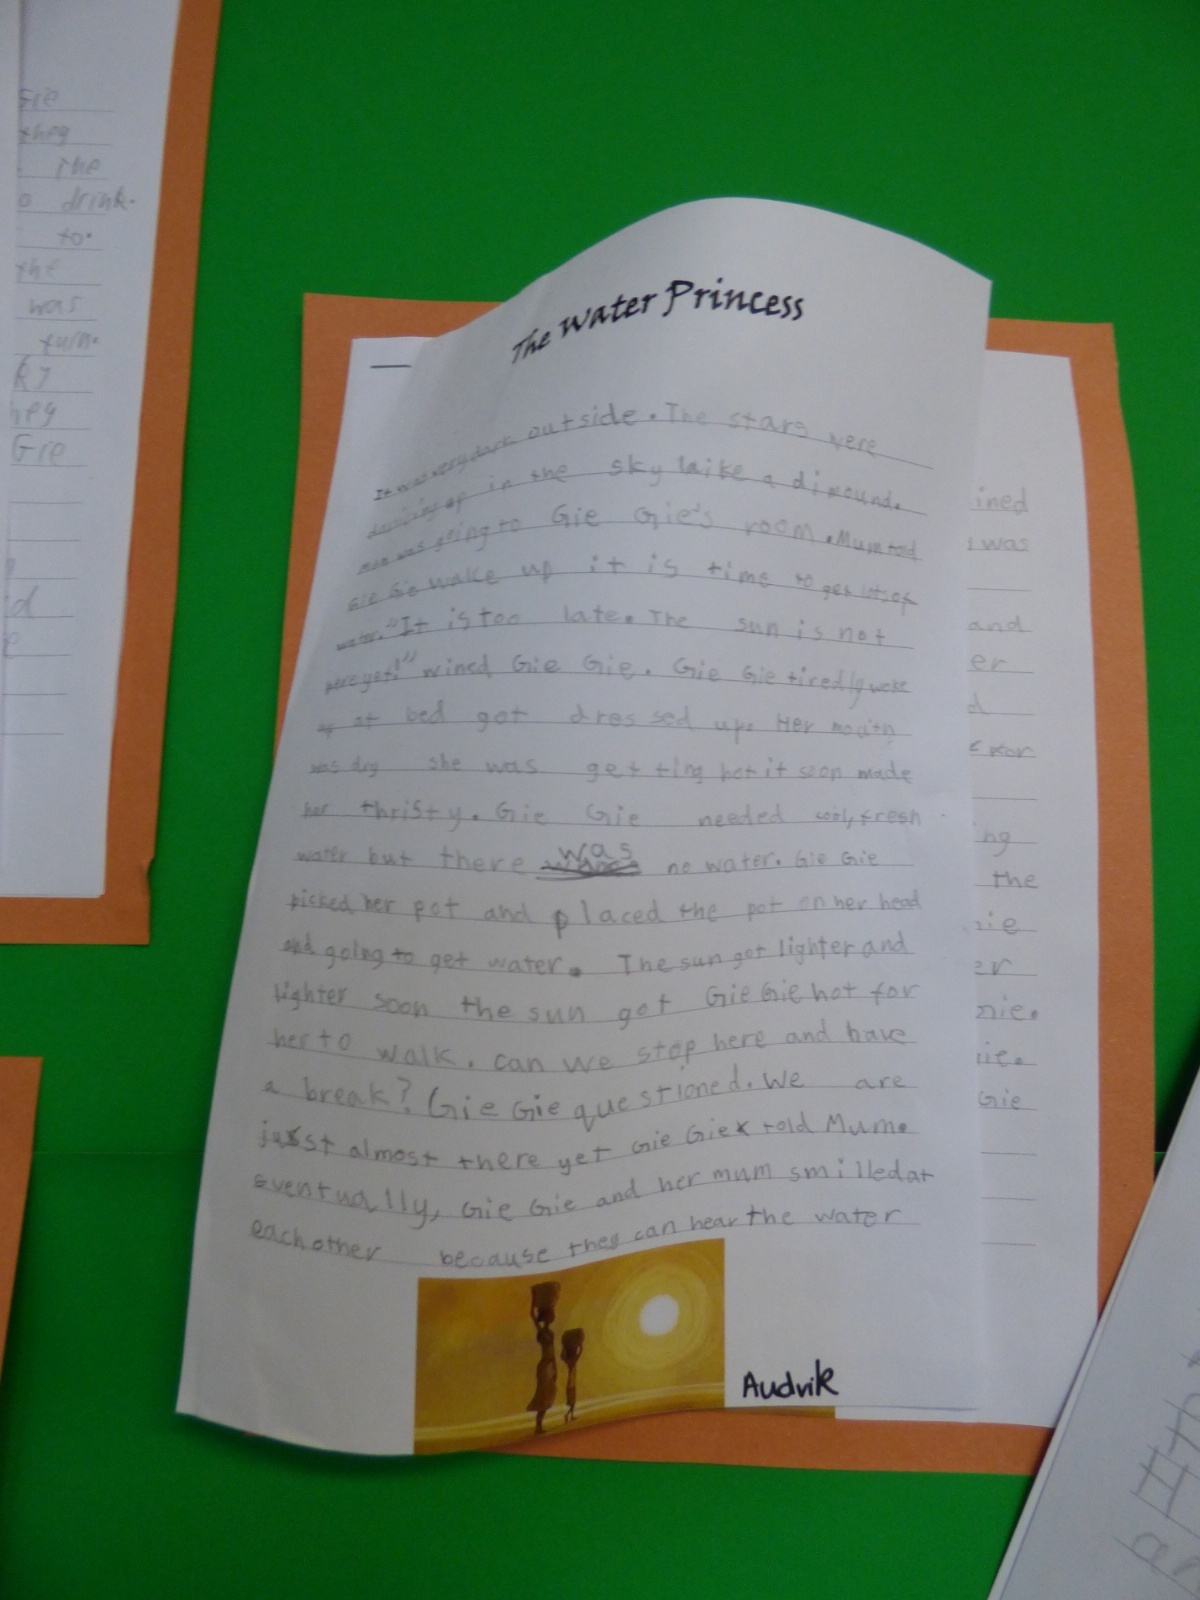 The Water Princess
It was very dark outside. The stars were
up in the sky laike a dimound.
was going to Gie Gie's room. Mum told
Gie Gie wake up it is time to get lots of
water. "It is too late. The sun is not
here yet!" wined Gie Gie. Gie Gie tiredly woke
up at bed got dressed up. Her mouth
was dry she was getting hot it soon made
her thristy. Gie Gie needed cool, fresh
water but there was no water. Gie Gie
picked her pot and placed the pot on her head
and going to get water. The sun got lighter and
lighter soon the sun got Gie Gie hot for
her to walk. can we stop here and have
a break? Gie Gie questioned. We are
just almost there yet Gie Gie told Mum.
eventually, Gie Gie and her mum smilled at
each other because they can hear the water
Audvik
Gie
they
The
drink.
to.
the
was
turn.
hey
Gie
ined
was
and
er
d
ing
the
nie
er
nie.
iie.
Gie